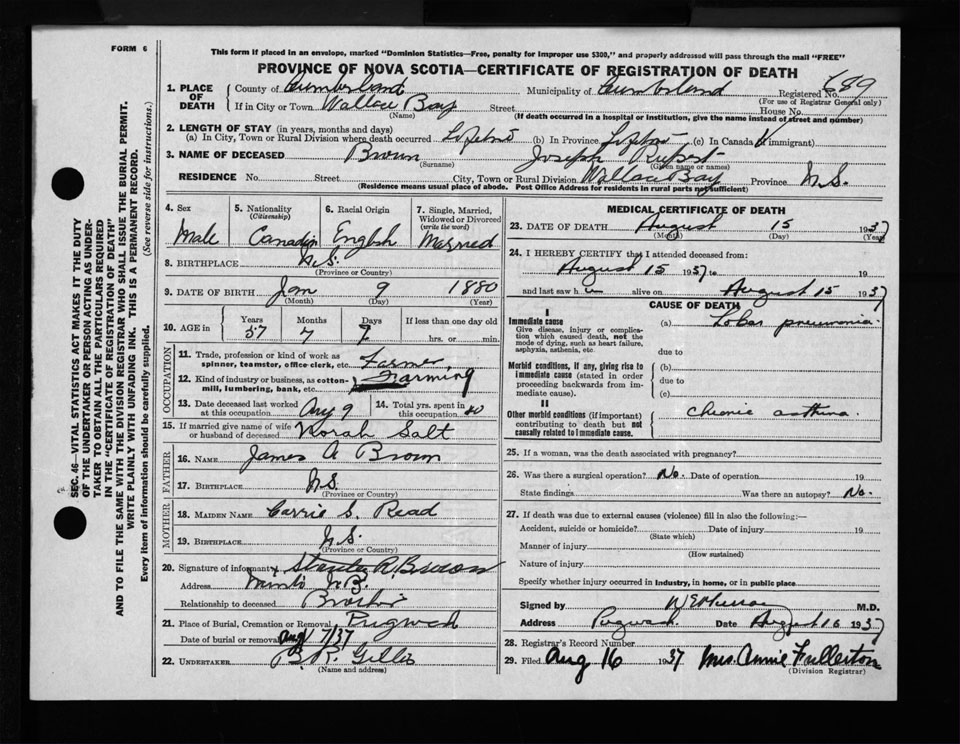 FORM 6
This form if placed in an envelope, marked "Dominion Statistics—Free, penalty for improper use $300," and properly addressed will pass through the mail "FREE"
PROVINCE OF NOVA SCOTIA—CERTIFICATE OF REGISTRATION OF DEATH
1. PLACE OF DEATH
County of Cumberland Municipality of Cumberland Registered No. 689
(For use of Registrar General only)
If in City or Town Wallace Bay Street House No.
(Name) (If death occurred in a hospital or institution, give the name instead of street and number)
2. LENGTH OF STAY (in years, months and days)
(a) In City, Town or Rural Division where death occurred Lifetime (b) In Province Lifetime (c) In Canada (if immigrant)
3. NAME OF DECEASED Brown Joseph Rupert
(Surname) (Given name or names)
RESIDENCE No. Street City, Town or Rural Division Wallace Bay Province N.S.
(Residence means usual place of abode. Post Office Address for residents in rural parts not sufficient)
4. Sex
Male
5. Nationality
(Citizenship)
Canadian
6. Racial Origin
English
7. Single, Married, Widowed or Divorced
(write the word)
Married
8. BIRTHPLACE N.S.
(Province or Country)
9. DATE OF BIRTH Jan 9 1880
(Month) (Day) (Year)
10. AGE in Years Months Days If less than one day old
57 7 7 hrs. or min.
OCCUPATION
11. Trade, profession or kind of work as spinner, teamster, office clerk, etc. Farmer
12. Kind of industry or business, as cotton-mill, lumbering, bank, etc. Farming
13. Date deceased last worked at this occupation Aug 9
14. Total yrs. spent in this occupation 40
15. If married give name of wife or husband of deceased Norah Salt
FATHER
16. NAME James A Brown
17. BIRTHPLACE N.S.
(Province or Country)
MOTHER
18. MAIDEN NAME Carrie S. Read
19. BIRTHPLACE N.S.
(Province or Country)
20. Signature of informant x Stanley R. Brown
Address Minto N.B.
Relationship to deceased Brother
21. Place of Burial, Cremation or Removal Pugwash
Date of burial or removal Aug 17/37
22. UNDERTAKER B. R. Gillis
(Name and address)
MEDICAL CERTIFICATE OF DEATH
23. DATE OF DEATH August 15 1937
(Month) (Day) (Year)
24. I HEREBY CERTIFY that I attended deceased from:
August 15 1937 to 19
and last saw h alive on August 15 1937
CAUSE OF DEATH
I
Immediate cause (a) Lobar pneumonia
Give disease, injury or complication which caused death, not the mode of dying, such as heart failure, asphyxia, asthenia, etc.
due to
Morbid conditions, if any, giving rise to immediate cause (stated in order proceeding backwards from immediate cause).
(b)
due to
(c)
II
Other morbid conditions (if important) contributing to death but not causally related to immediate cause.
chronic asthma.
25. If a woman, was the death associated with pregnancy?
26. Was there a surgical operation? No. Date of operation 19
State findings Was there an autopsy? No.
27. If death was due to external causes (violence) fill in also the following:—
Accident, suicide or homicide? Date of injury 19
(State which)
Manner of injury
(How sustained)
Nature of injury
Specify whether injury occurred in industry, in home, or in public place
Signed by M.D.
Address Pugwash Date August 16 1937
28. Registrar's Record Number
29. Filed Aug 16 1937 Mrs. Annie Fullerton
(Division Registrar)
SEC. 46—VITAL STATISTICS ACT MAKES IT THE DUTY
OF THE UNDERTAKER OR PERSON ACTING AS UNDER-
TAKER TO OBTAIN ALL THE PARTICULARS REQUIRED
IN THE "CERTIFICATE OF REGISTRATION OF DEATH"
AND TO FILE THE SAME WITH THE DIVISION REGISTRAR WHO SHALL ISSUE THE BURIAL PERMIT.
WRITE PLAINLY WITH UNFADING INK. THIS IS A PERMANENT RECORD.
Every item of information should be carefully supplied. (See reverse side for instructions.)